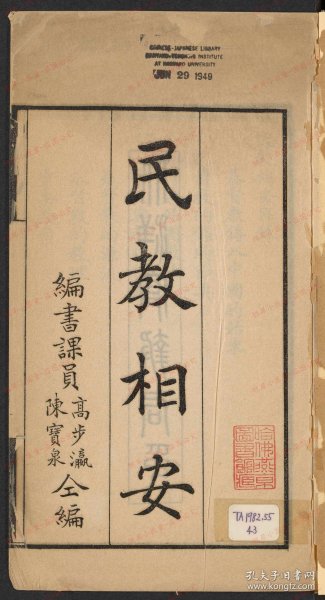 CHINESE-JAPANESE LIBRARY
HARVARD-YENCHING INSTITUTE
AT HARVARD UNIVERSITY
JUN 29 1949
民教相安
編書課員高步瀛陳寶泉仝編
TA 1982.55
43
孔夫子旧书网